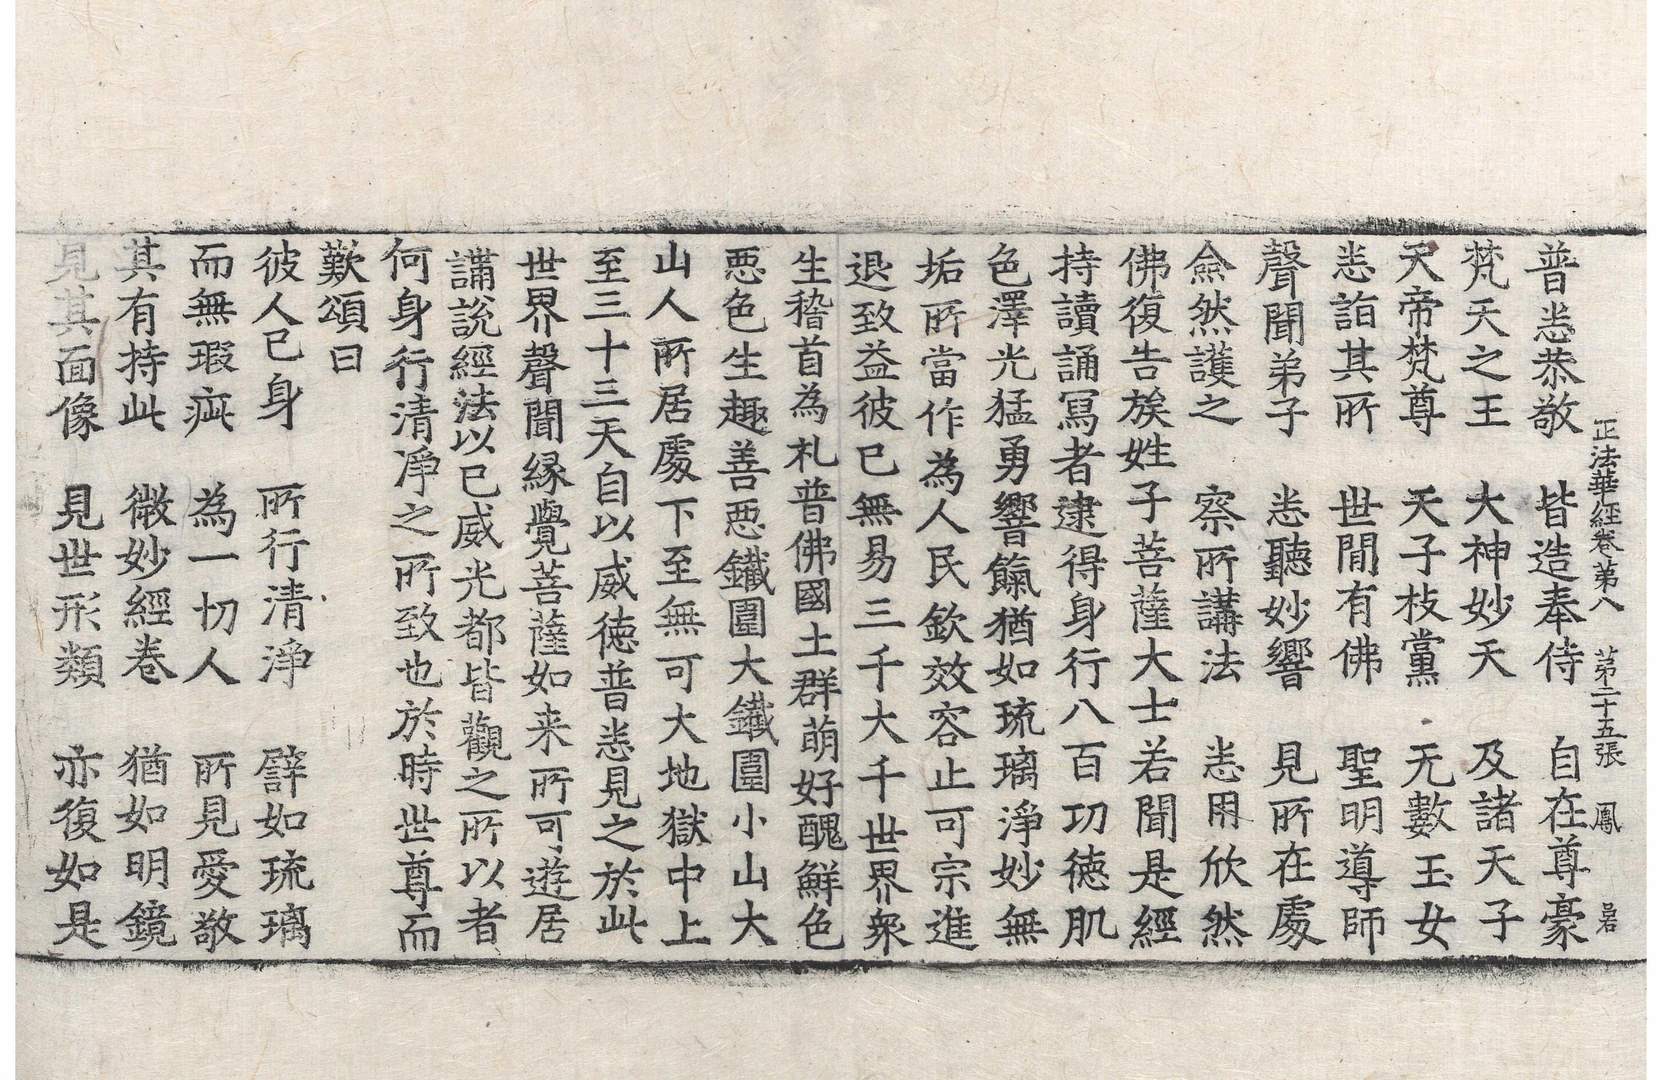 正法華經卷第八　第二十五張　鳳
普悉恭敬　皆造奉侍　自在尊豪
梵天之王　大神妙天　及諸天子
天帝梵尊　天子枝黨　无數玉女
悉詣其所　世閒有佛　聖明導師
聲聞弟子　悉聽妙響　見所在處
僉然護之　察所講法　悉用欣然
佛復告族姓子菩薩大士若聞是經
持讀誦寫者逮得身行八百功德肌
色澤光猛勇響餼猶如琉璃淨妙無
垢所當作為人民欽效容止可宗進
退致益彼已無易三千大千世界衆
生稽首為礼普佛國土群萌好醜鮮色
惡色生趣善惡鐵圍大鐵圍小山大
山人所居處下至無可大地獄中上
至三十三天自以威德普悉見之於此
世界聲聞緣覺菩薩如来所可遊居
講說經法以己威光都皆觀之所以者
何身行清淨之所致也於時世尊而
歎頌曰
彼人已身　所行清淨　譬如琉璃
而無瑕疵　為一切人　所見愛敬
其有持此　微妙經卷　猶如明鏡
見其面像　見世形類　亦復如是